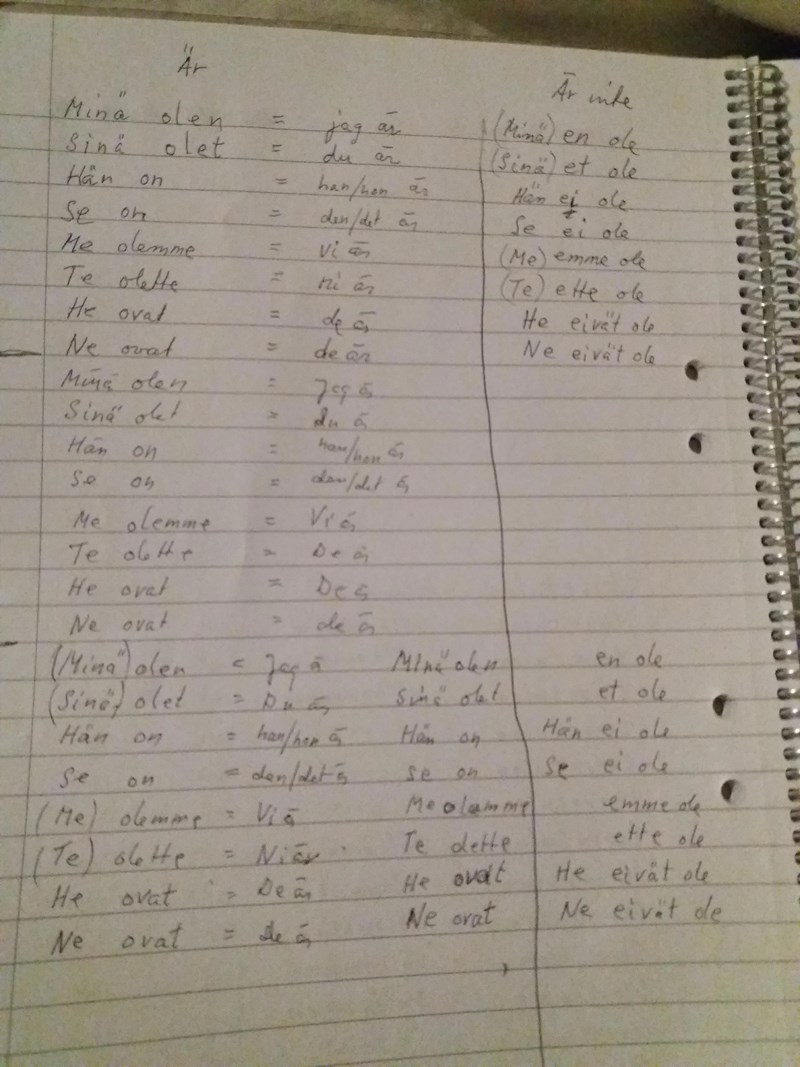 Är Är inte
Minä olen = jag är (Minä) en ole
Sinä olet = du är (Sinä) et ole
Hän on = han/hon är Hän ei ole
Se on = den/det är Se ei ole
Me olemme = vi är (Me) emme ole
Te olette = ni är (Te) ette ole
He ovat = de ä He eivät ole
Ne ovat = de är Ne eivät ole
Minä olen = Jag ä
Sinä olet = du ä
Hän on = han/hon ä
Se on = den/det ä
Me olemme = Vi ä
Te olette = De ä
He ovat = De ä
Ne ovat = de ä
(Minä) olen = Jag ä Minä olen en ole
(Sinä) olet = Du ä Sinä olet et ole
Hän on = han/hon ä Hän on Hän ei ole
Se on = den/det ä se on Se ei ole
(Me) olemme = Vi ä Me olemme emme ole
(Te) olette = Ni är Te olette ette ole
He ovat = De ä He ovat He eivät ole
Ne ovat = de ä Ne ovat Ne eivät ole